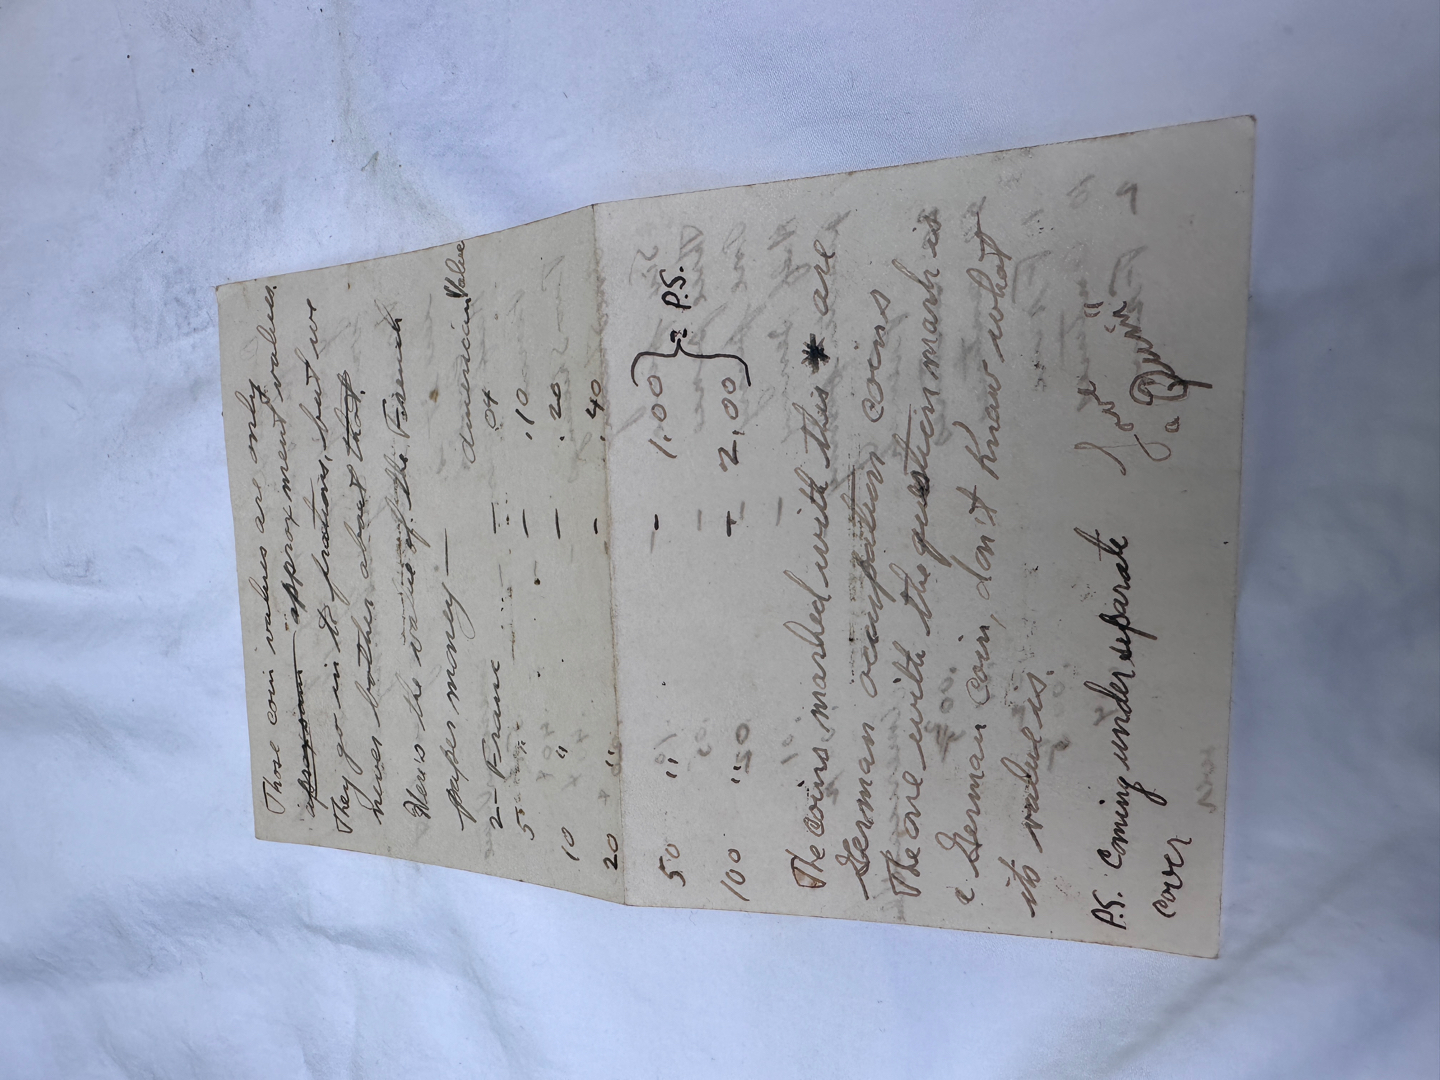 Those coin values are only
approxiam approxment values.
They go in to frations, but we
never bother about that.
Heres the value of the French
paper money — American Value
2 — Franc — .04
5 " — .10
10 " — .20
20 " — .40
50 " — 1.00 } = P.S.
100 " — 2.00
The coins marked with this * are
German occupation coins
The one with the question mark is
a German coin, don't know what
its value is.
Love
P.S. Coming under separate
cover